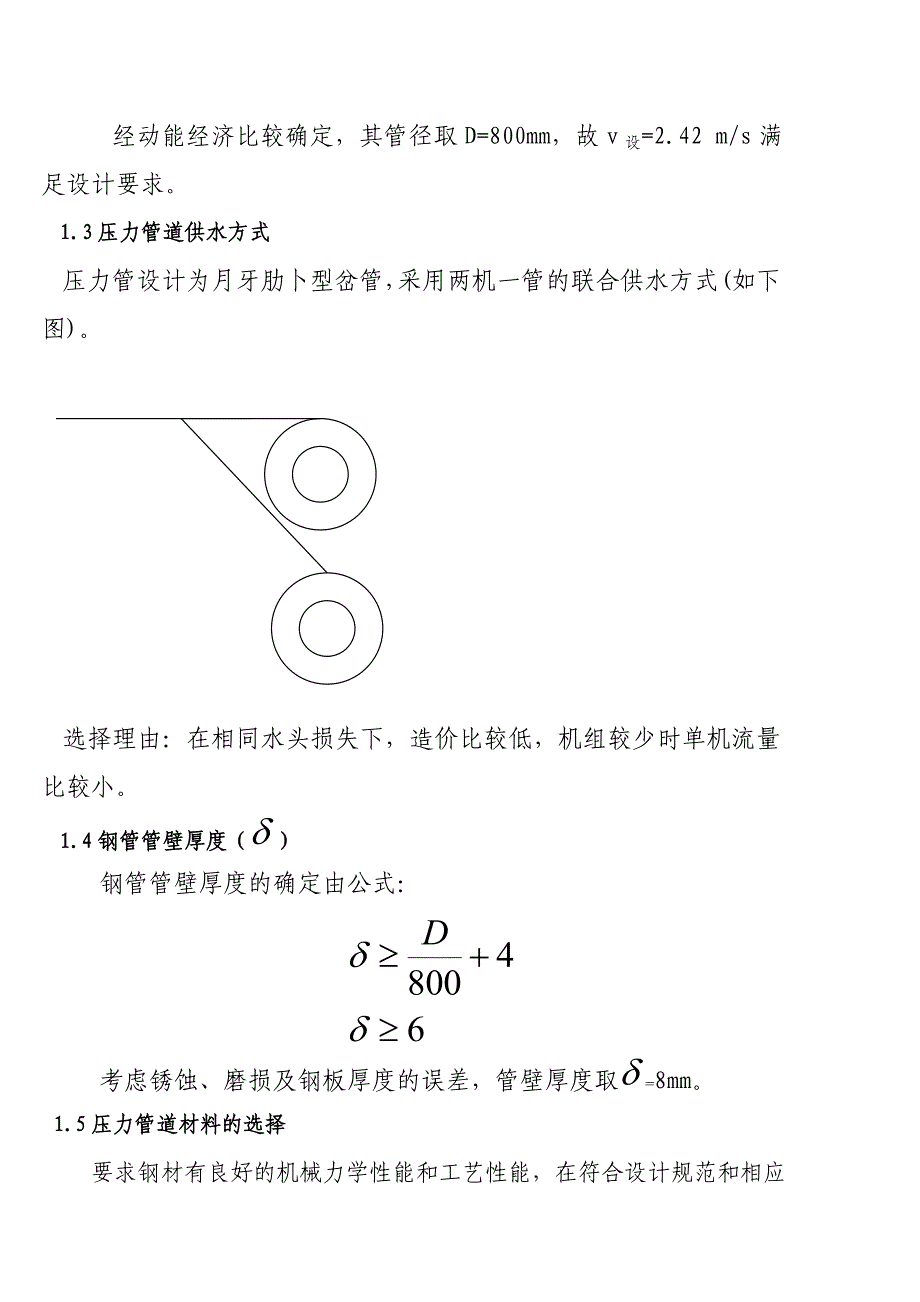 经动能经济比较确定，其管径取 D=800mm，故 v 设=2.42 m/s 满
足设计要求。
1.3 压力管道供水方式
压力管设计为月牙肋卜型岔管,采用两机一管的联合供水方式(如下
图)。
选择理由：在相同水头损失下，造价比较低，机组较少时单机流量
比较小。
1.4 钢管管壁厚度（δ）
钢管管壁厚度的确定由公式：
δ ≥ D/800 + 4
δ ≥ 6
考虑锈蚀、磨损及钢板厚度的误差，管壁厚度取δ=8mm。
1.5 压力管道材料的选择
要求钢材有良好的机械力学性能和工艺性能，在符合设计规范和相应